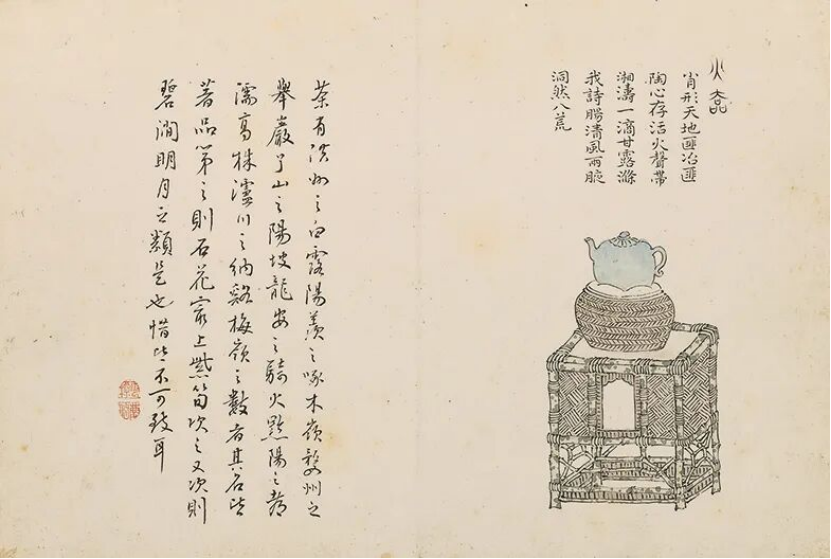 火
肖形天地匪冶匪
陶心存活火聲帶
湘濤一滴甘露滌
我詩腸清風兩腋
洞然八荒
茶有洪州之白露陽羨之啄木嶺婺州之
舉巖丫山之陽坡龍安之騎火黔陽之都
濡高株瀘川之納谿梅嶺之數者其名皆
著品第之則石花最上紫筍次之又次則
碧澗明月之類是也惜皆不可致耳